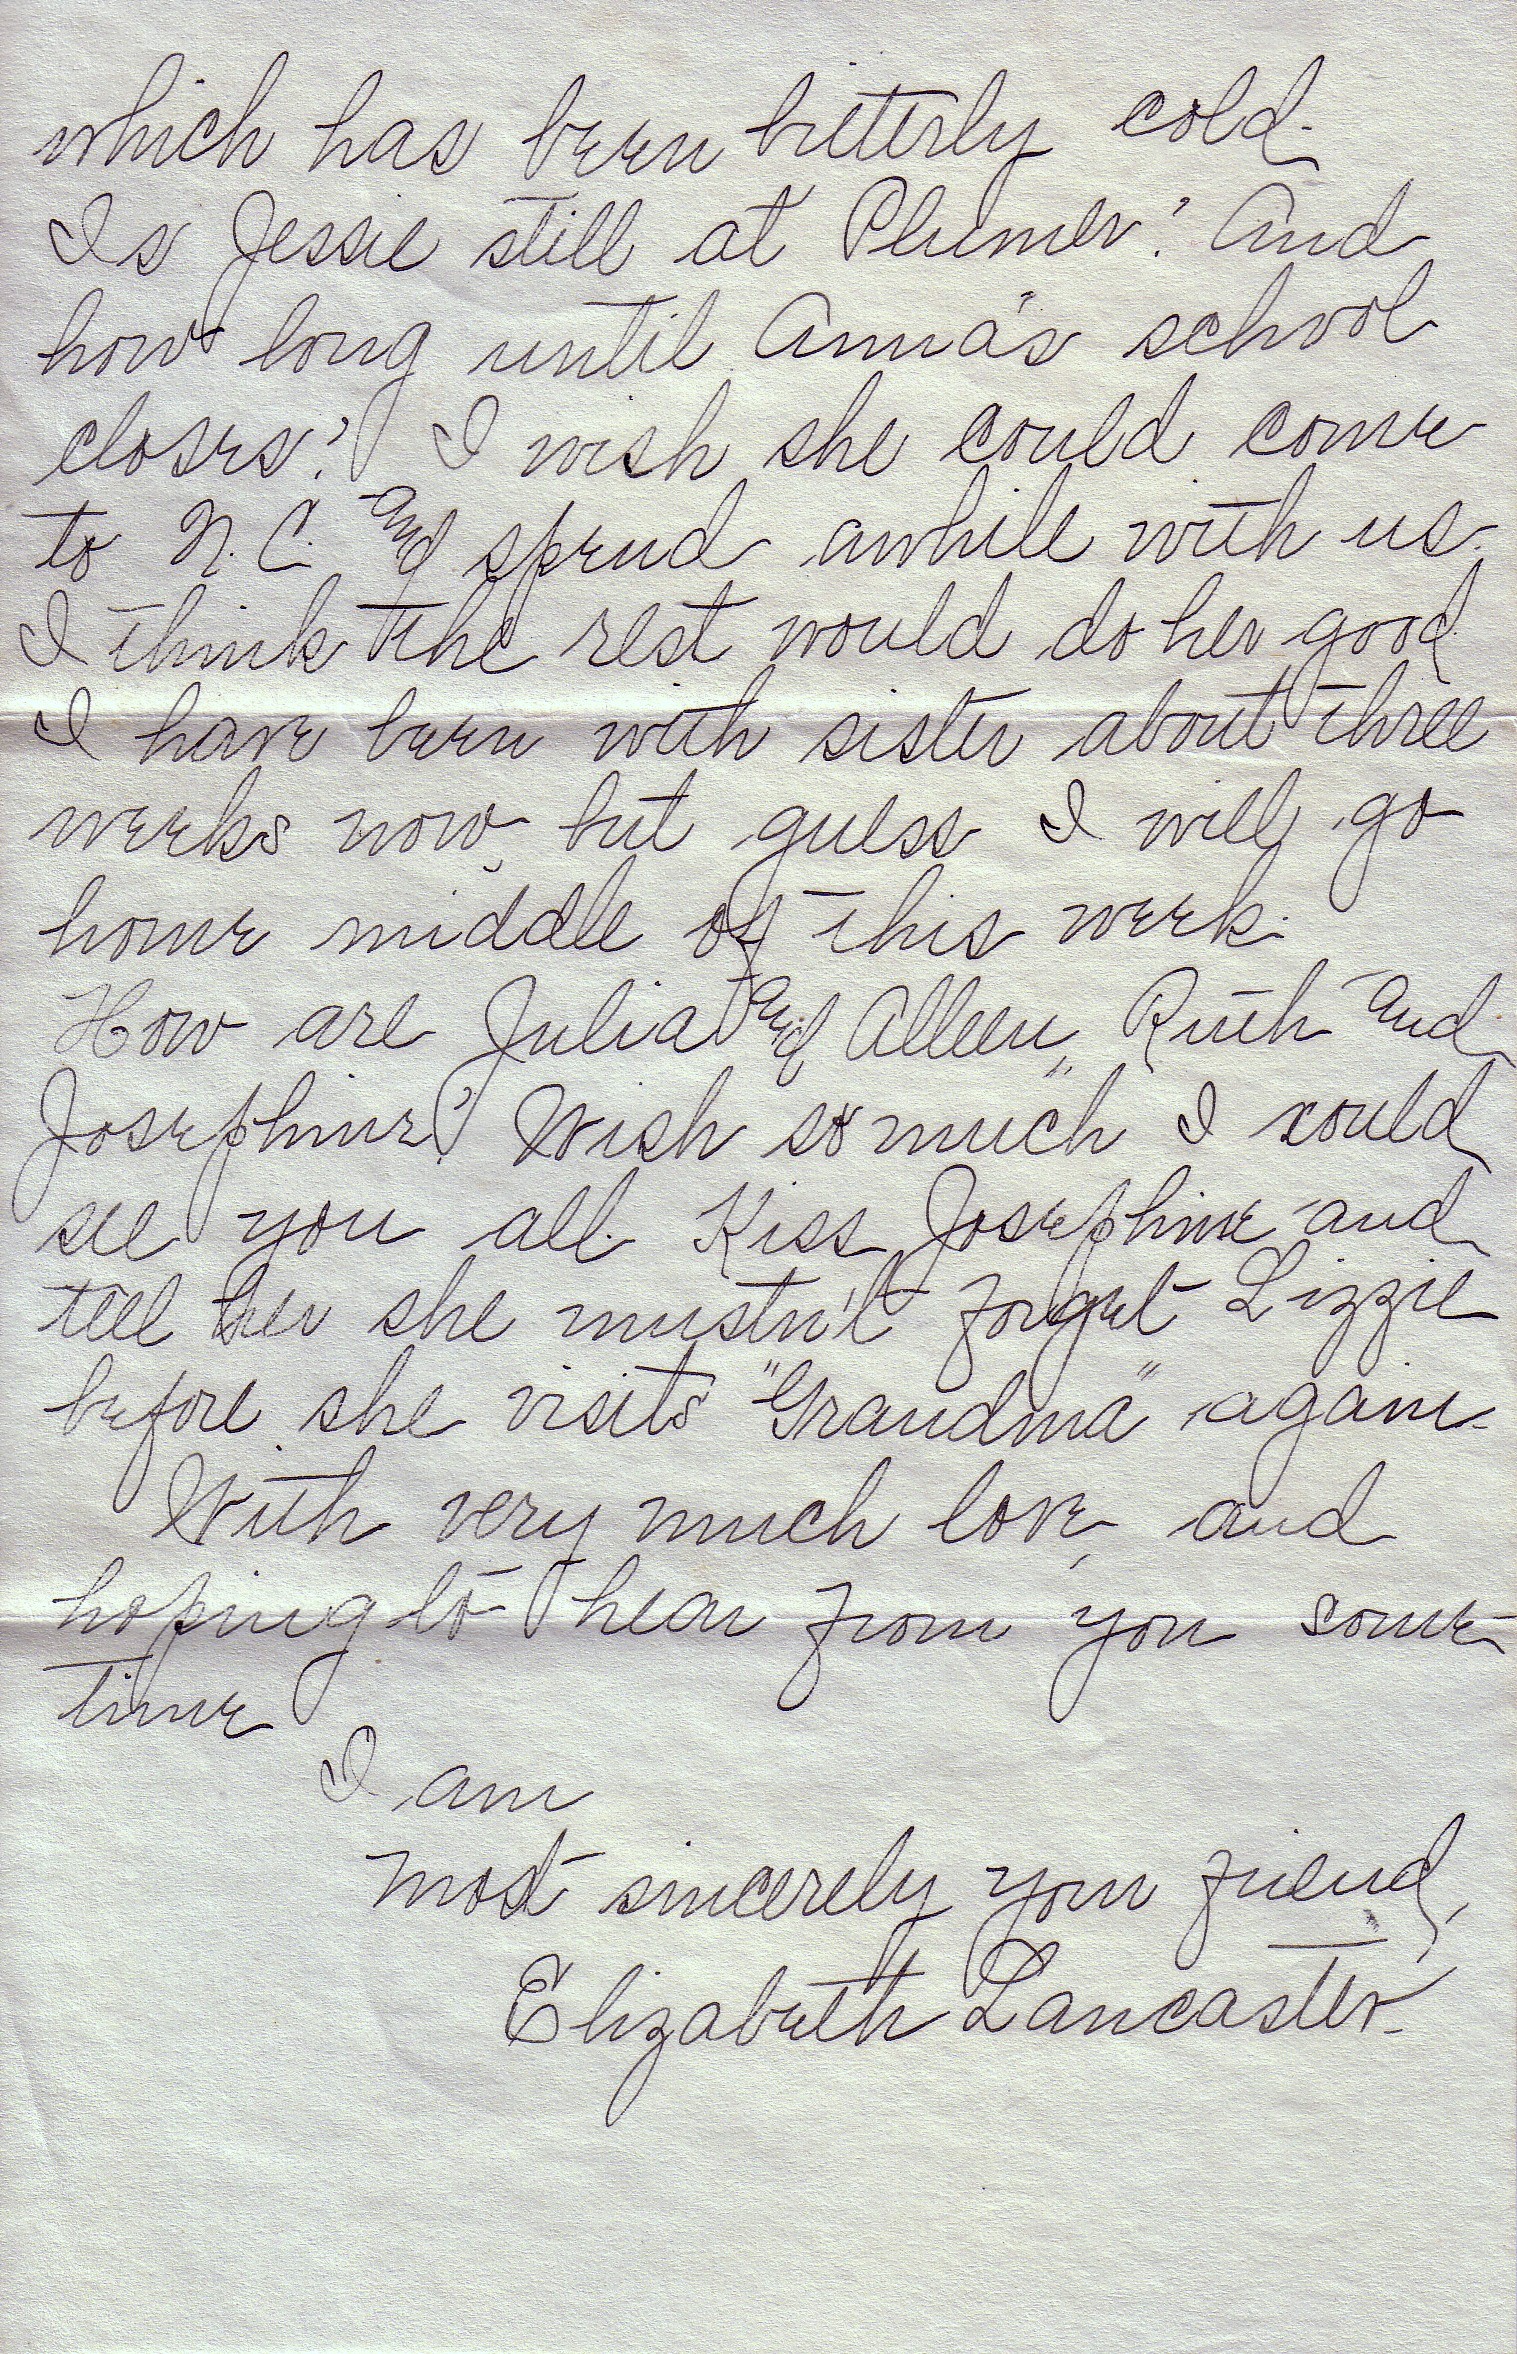 which has been bitterly cold.
Is Jessie still at Plumer? And
how long until Anna's school
closes? I wish she could come
to N.C. and spend awhile with us.
I think the rest would do her good.
I have been with sister about three
weeks now, but guess I will go
home middle of this week.
How are Julia and Alleen, Ruth and
Josephine? Wish so much I could
see you all. Kiss Josephine and
tell her she mustn't forget Lizzie
before she visits "Grandma" again.
With very much love, and
hoping to hear from you some-
time
I am
Most sincerely your friend,
Elizabeth Lancaster.